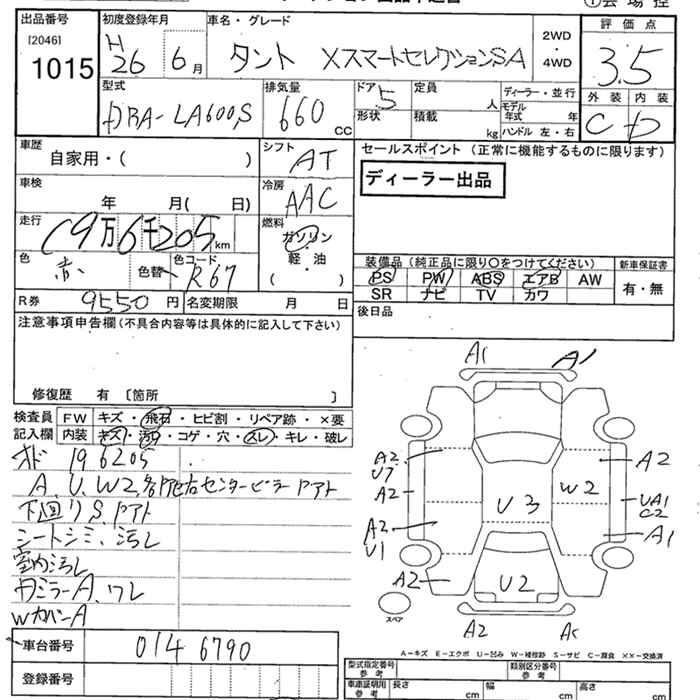 出品番号 初度登録年月 車名・グレード 評価点
[2046] 1015
H26 6月 タント XスマートセレクションSA 2WD・4WD 3.5
型式 排気量 ドア 定員 人 ディーラー・並行 外装 内装
DBA-LA600S 660cc 5 形状 積載 kg モデル年式 年 ハンドル 左・右 C D
車歴 自家用・( ) シフト AT セールスポイント(正常に機能するものに限ります)
車検 年 月( 日) 冷房 AAC ディーラー出品
走行 19万6千205km 燃料 ガソリン・軽・油 ( )
色 赤 色替 色コード R67
装備品(純正品に限り○をつけてください) 新車保証書
PS PW ABS エアB AW 有・無
SR ナビ TV カワ
R券 9550円 名変期限 月 日 後日品
注意事項申告欄(不具合内容等は具体的に記入して下さい)
修復歴 有 〔箇所 〕
検査員記入欄 FW キズ・飛石・ヒビ割・リペア跡・×要
内装 キズ・汚れ・コゲ・穴・スレ・キレ・破レ
オド 196205
A、U、W2、各所
下回りS
シートシミ、汚レ
室内汚レ
ミラーA、ワレ
WカバーA
A1 A1
A2 U7 A2
A2 W2 UA1 C2
U3
A2 U1 A1
A2 U2
A2
スペア
A-キズ E-エクボ U-凹み W-補修跡 S-サビ C-腐食 ××-交換済
車台番号 0146790
登録番号
型式指定番号 参考 類別区分番号 参考
車庫証明用 参考 長さ cm 幅 cm 高さ cm